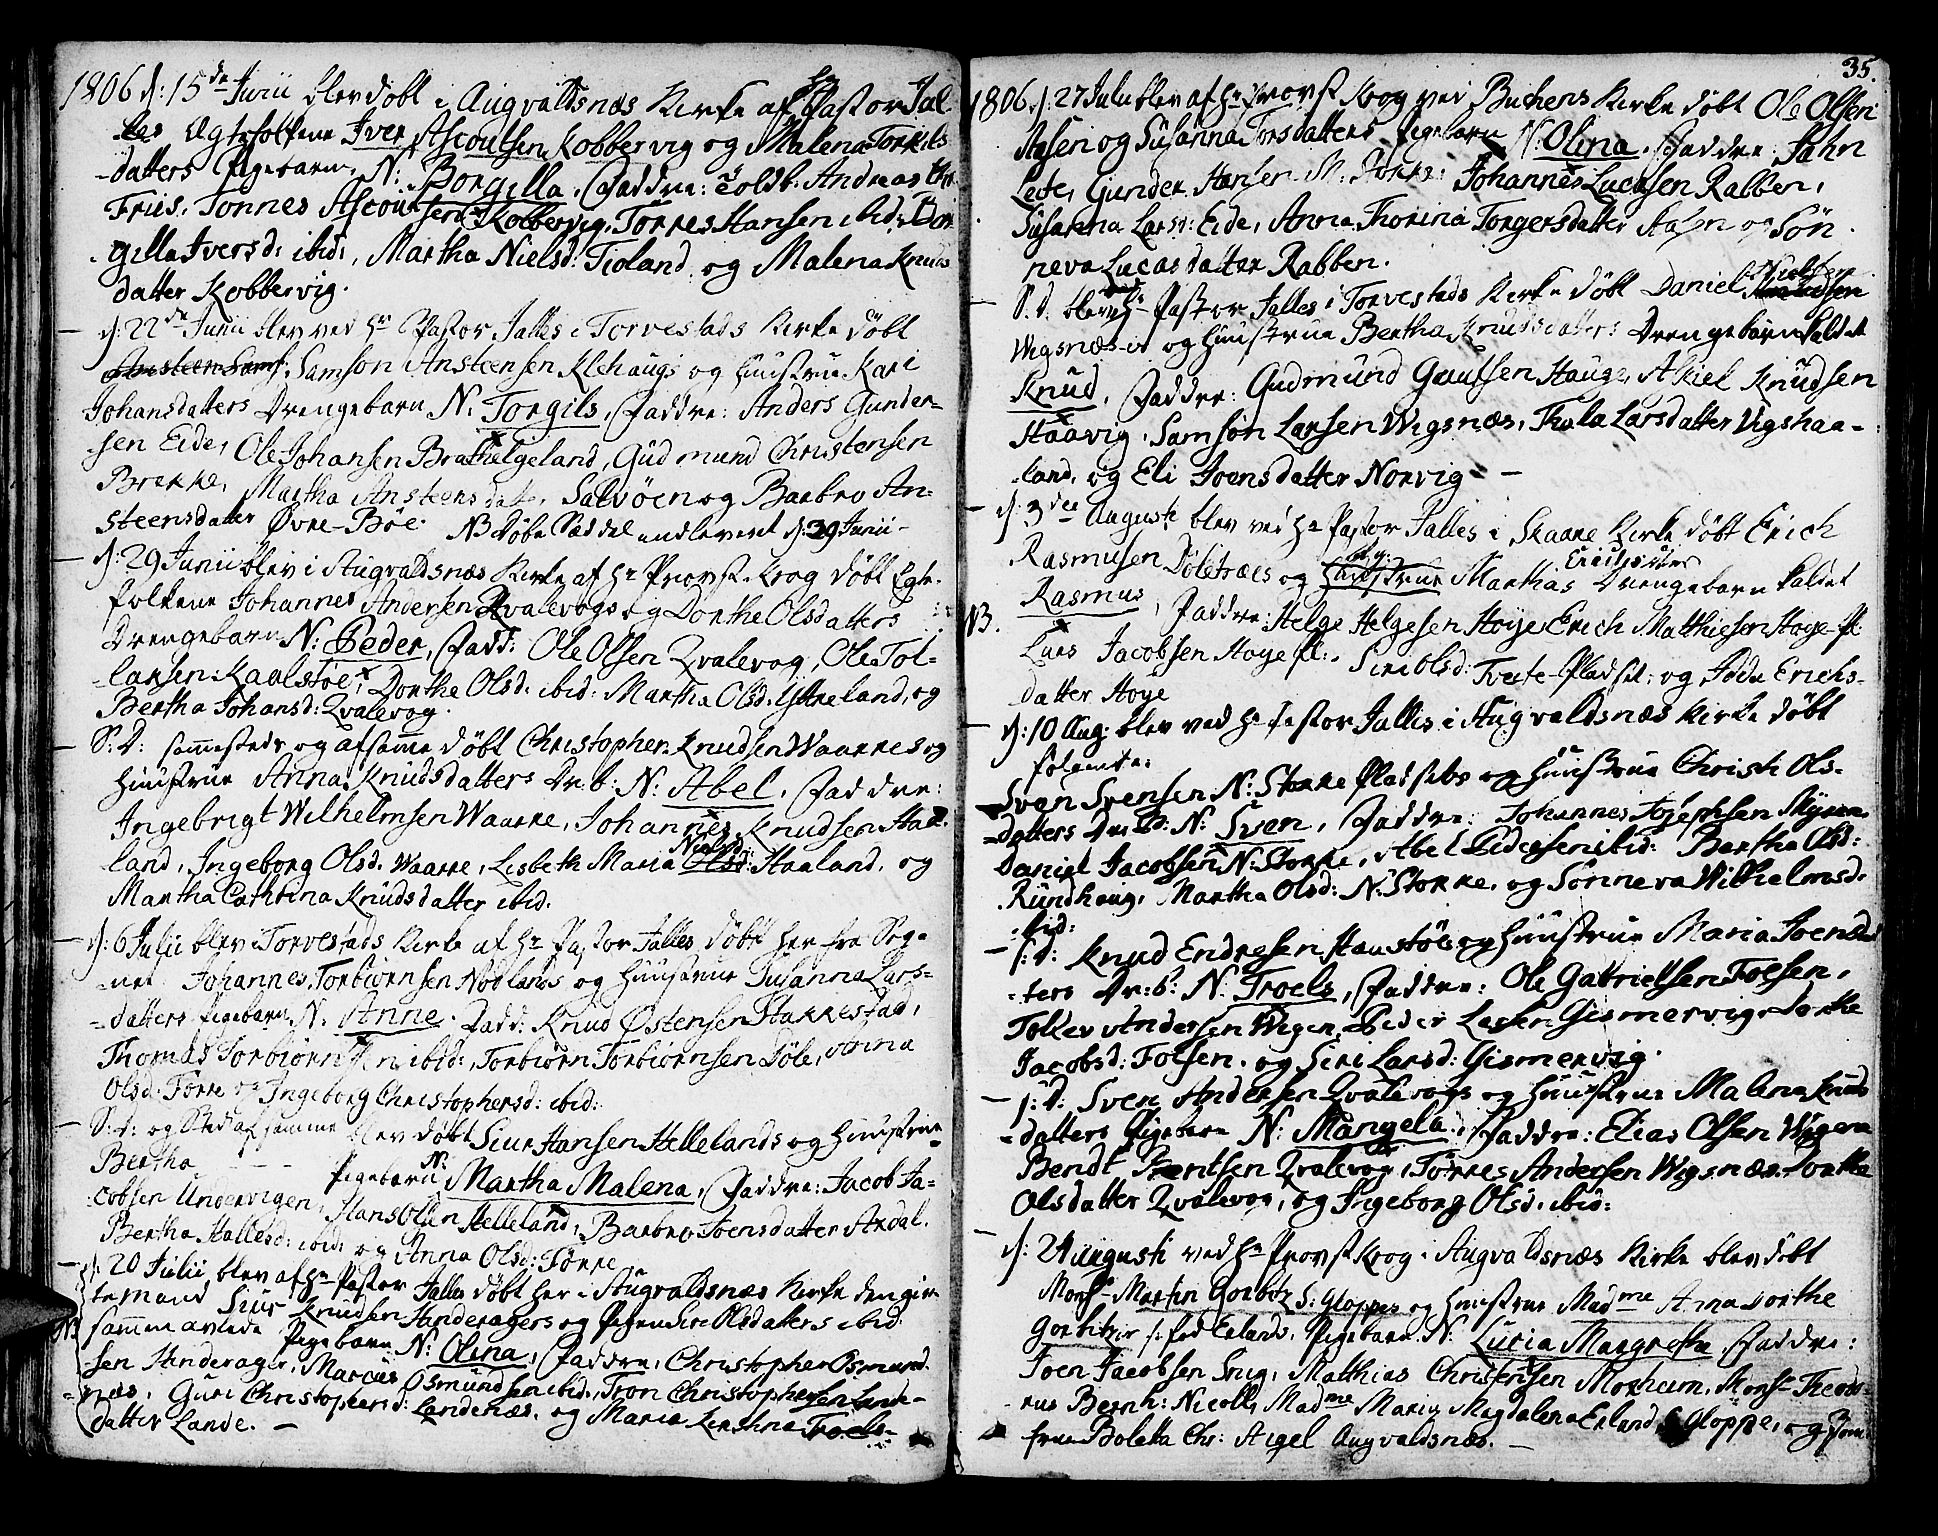 1806 d: 15de Junii blev döbt i Augvaldsnæs Kirke af Hr Pastor Jal
les Egtefolkene Iver Ascoutsen Kobbervig og Malena Torkils
datters Pigebarn, N: Borgilla. Faddre: Toldb. Andreas Chr.
Friis, Tonnes Ascoutsen Kobbervig, Törres Hansen ibid: Bor
gilla Iversd: ibid:, Martha Nielsd: Fioland og Malena Knuds
datter Kobbervig.
d: 22de Junii blev ved Hr Pastor Jalles i Torvestads Kirke döbt
Ansteen Sams. Samson Ansteensen Klehaugs og Huustrue Kari
Johansdatters Drengebarn N: Torgils, Faddre: Anders Gunder-
sen Eide, Ole Johansen Brathelgeland, Gudmund Christensen
Brekke, Martha Ansteensdatter Salvöen og Barbro An-
steensdatter Övre-Böe. NB Döbe Sæddel underleveret d: 29 Junii
d: 29 Junii blev i Augvaldsnæs Kirke af Hr Provst Krog döbt Egte-
folkene Johannes Andersen Qvalevogs og Dorthe Olsdatters
Drengebarn N: Peder, Fadd: Ole Olsen Qvalevog, Ole Tol-
lansen Kaalstöe, Dorthe Olsd: ibid: Martha Olsd: Yttreland, og
Bertha Johansd: Qvalevog.
S: D: sammesteds og af samme döbt Christopher Knudsen Waarres og
Huustrue Anna Knudsdatters Dr: b: N: Abel. Faddre:
Ingebrigt Wilhelmsen Waarre, Johannes Knudsen Haa-
land, Ingeborg Olsd. Waarre, Lisbeth Maria Nielsd: Olsd: Haaland, og
Martha Cathrina Knudsdatter ibid.
d: 6 Julii blev i Torvestads Kirke af Hr Pastor Jalles döbt her fra Sog-
net Johannes Torbiörnsen Nodlands og Huustrue Susanna Lars-
datters Pigebarn N: Anne. Fadd: Knud Östensen Stakkestad,
Thomas Torbiörnsen ibid:, Torbiörn Torbiörnsen Döle, Anna
Olsd: Förre og Ingeborg Christophersd: ibid:
S: d: og Sted af samme blev döbt Siur Hansen Hellelands og Huustrue
Bertha - - - Pigebarn N: Martha Malena, Faddre: Jacob Ja-
cobsen Undervigen, Hans Olsen Helleland, Barbro Joensdatter Ardal.
Bertha Hallesd: ibid: og Anna Olsd: Förre
d: 20 Julii blev af Hr Pastor Jalles döbt her i Augvaldsnæs Kirke den gif-
NB temand Siur Knudsen Hinderagers og Pigen Siri Olsdatters ibid:
sammenavlede Pigebarn N: Olina, Faddre, Christopher Osmund-
sen Hinderager, Marcus Osmundsen ibid:, Tron Christophersen Lande-
næs, Guri Christophersd: Landenæs, og Maria Kerstina Troels-
datter Lande. -
35.
1806. d. 27 Julii blev af Hr Provst Krog ved Buckens Kirke döbt Ole Olsen
Aasen og Susanna Torsdatters Pigebarn N: Olina. Faddre: Jahn
Leite, Gunder Hansen M: Stokke: Johannes Lucasen Rabben,
Susanna Larsd: Eide, Anna Thorina Torgersdatter Aasen og Sön
neva Lucasdatter Rabben.
S. d. blev ved Hr Pastor Jalles i Torvestads Kirke döbt Daniel Nielsen
Wigsnæs- og Huustrue Bertha Knudsdatters Drengebarn kaldet
Knud, Faddre: Gudmund Gautsen Hauge, Askiel Knudsen
Haavig, Samson Larsen Wigsnæs, Thala Larsdatter Vigshaa-
land, og Eli Joensdatter Norvig. -
d: 3die Augusti blev ved Hr Pastor Jalles i Skaare Kirke döbt Erich
Rasmusen Döletræes og Huustrue Marthas Ericksdatter Drengebarn kaldet
NB. Rasmus, Faddre: Helge Helgesen Hoye Erich Matthiesen Hoye pl.
Lars Jacobsen Hoye pl:, Siri Olsd: Tveite-Pladset, og Adda Erichs-
datter Hoye
d: 10 Aug: blev ved Hr Pastor Jalles i Augvaldsnæs Kirke döbt
folgende:
Sven Svensen N: Stokke Pladsets og Huustrue Christi Ols-
datters Dr: B: N: Sven, Faddre: Johannes Josephsen Myren
Daniel Jacobsen N: Stokke, Abel Pedersen ibid: Bertha Olsd:
Rundhaug, Martha Olsd: N: Stokke, og Sönneva Wilhelmsd.
ibid:
S: d: Knud Endresen Haustöls og Huustrue Maria Joensdat
ters Dr: b: N. Troels, Faddre: Ole Gabrielsen Folsen,
Tollev Andersen Wigen, Peder Larsen Gismervig, Dorthe
Jacobsd: Folsen. og Siri Larsd: Gismervig.
S: d: Sven Andersen Qvalevogs og Huustrue Malena Knuds
datters Pigebarn N: Mangela, Faddre: Elias Olsen Wigen
Bendt Bentsen Qvalevog, Törres Andersen Wigsnæs. Dorthe
Olsdatter Qvalevog, og Ingeborg Olsd. ibid:
d: 24 Augusti ved Hr Provst Krog i Augvaldsnæs Kirke blev döbt
Monsr Martin Gorbitz S: Gloppes og Huustrue Madme Anna Dorthe
Gorbitzir Pigebarn N: Lucia Margrethe, Faddre:
Joen Jacobsen Snig, Matthias Christensen Moxheim, Monsr Theodo-
rus Bernh: Nicoll, Madme Maria Magdalena Erland, S: Gloppe, og Jom-
frue Bolette Chr: Aigel Augvaldsnæs. -